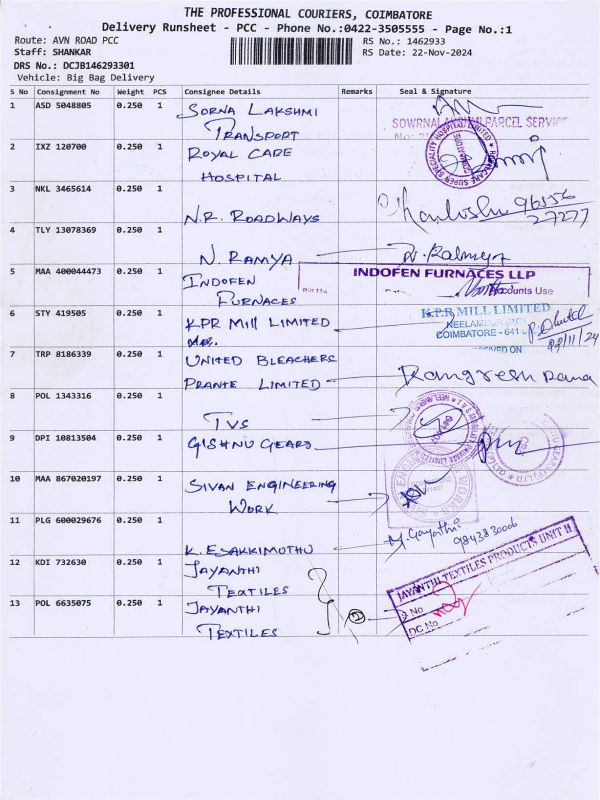 THE PROFESSIONAL COURIERS, COIMBATORE
Delivery Runsheet - PCC - Phone No.:0422-3505555 - Page No.:1
Route: AVN ROAD PCC
RS No.: 1462933
Staff: SHANKAR
RS Date: 22-Nov-2024
DRS No.: DCJB146293301
Vehicle: Big Bag Delivery
S No Consignment No Weight PCS Consignee Details Remarks Seal & Signature
1 ASD 5048805 0.250 1 SORNA LAKSHMI
TRANSPORT
SOWRNALAKSHMI PARCEL SERVICE
2 IXZ 120700 0.250 1 ROYAL CARE
HOSPITAL
3 NKL 3465614 0.250 1
N.R. ROADWAYS
96556
27277
4 TLY 13078369 0.250 1
N. RAMYA
5 MAA 400044473 0.250 1 INDOFEN
FURNACES
INDOFEN FURNACES LLP
Accounts Use
6 STY 419505 0.250 1 KPR MILL LIMITED
K.P.R MILL LIMITED
NEELAMBUR (PO)
COIMBATORE - 641
22/11/24
7 TRP 8186339 0.250 1 UNITED BLEACHERS
PRANTE LIMITED
8 POL 1343316 0.250 1
TVS
9 DPI 10813504 0.250 1 GISHNU GEARS
10 MAA 867020197 0.250 1 SIVAN ENGINEERING
WORK
11 PLG 600029676 0.250 1
K. ESAKKIMUTHU
M. Gayathri
9843830006
12 KDI 732630 0.250 1 JAYANTHI
TEXTILES
13 POL 6635075 0.250 1 JAYANTHI
TEXTILES
2
JAYANTHI TEXTILES PRODUCTS UNIT II
S No
DC No